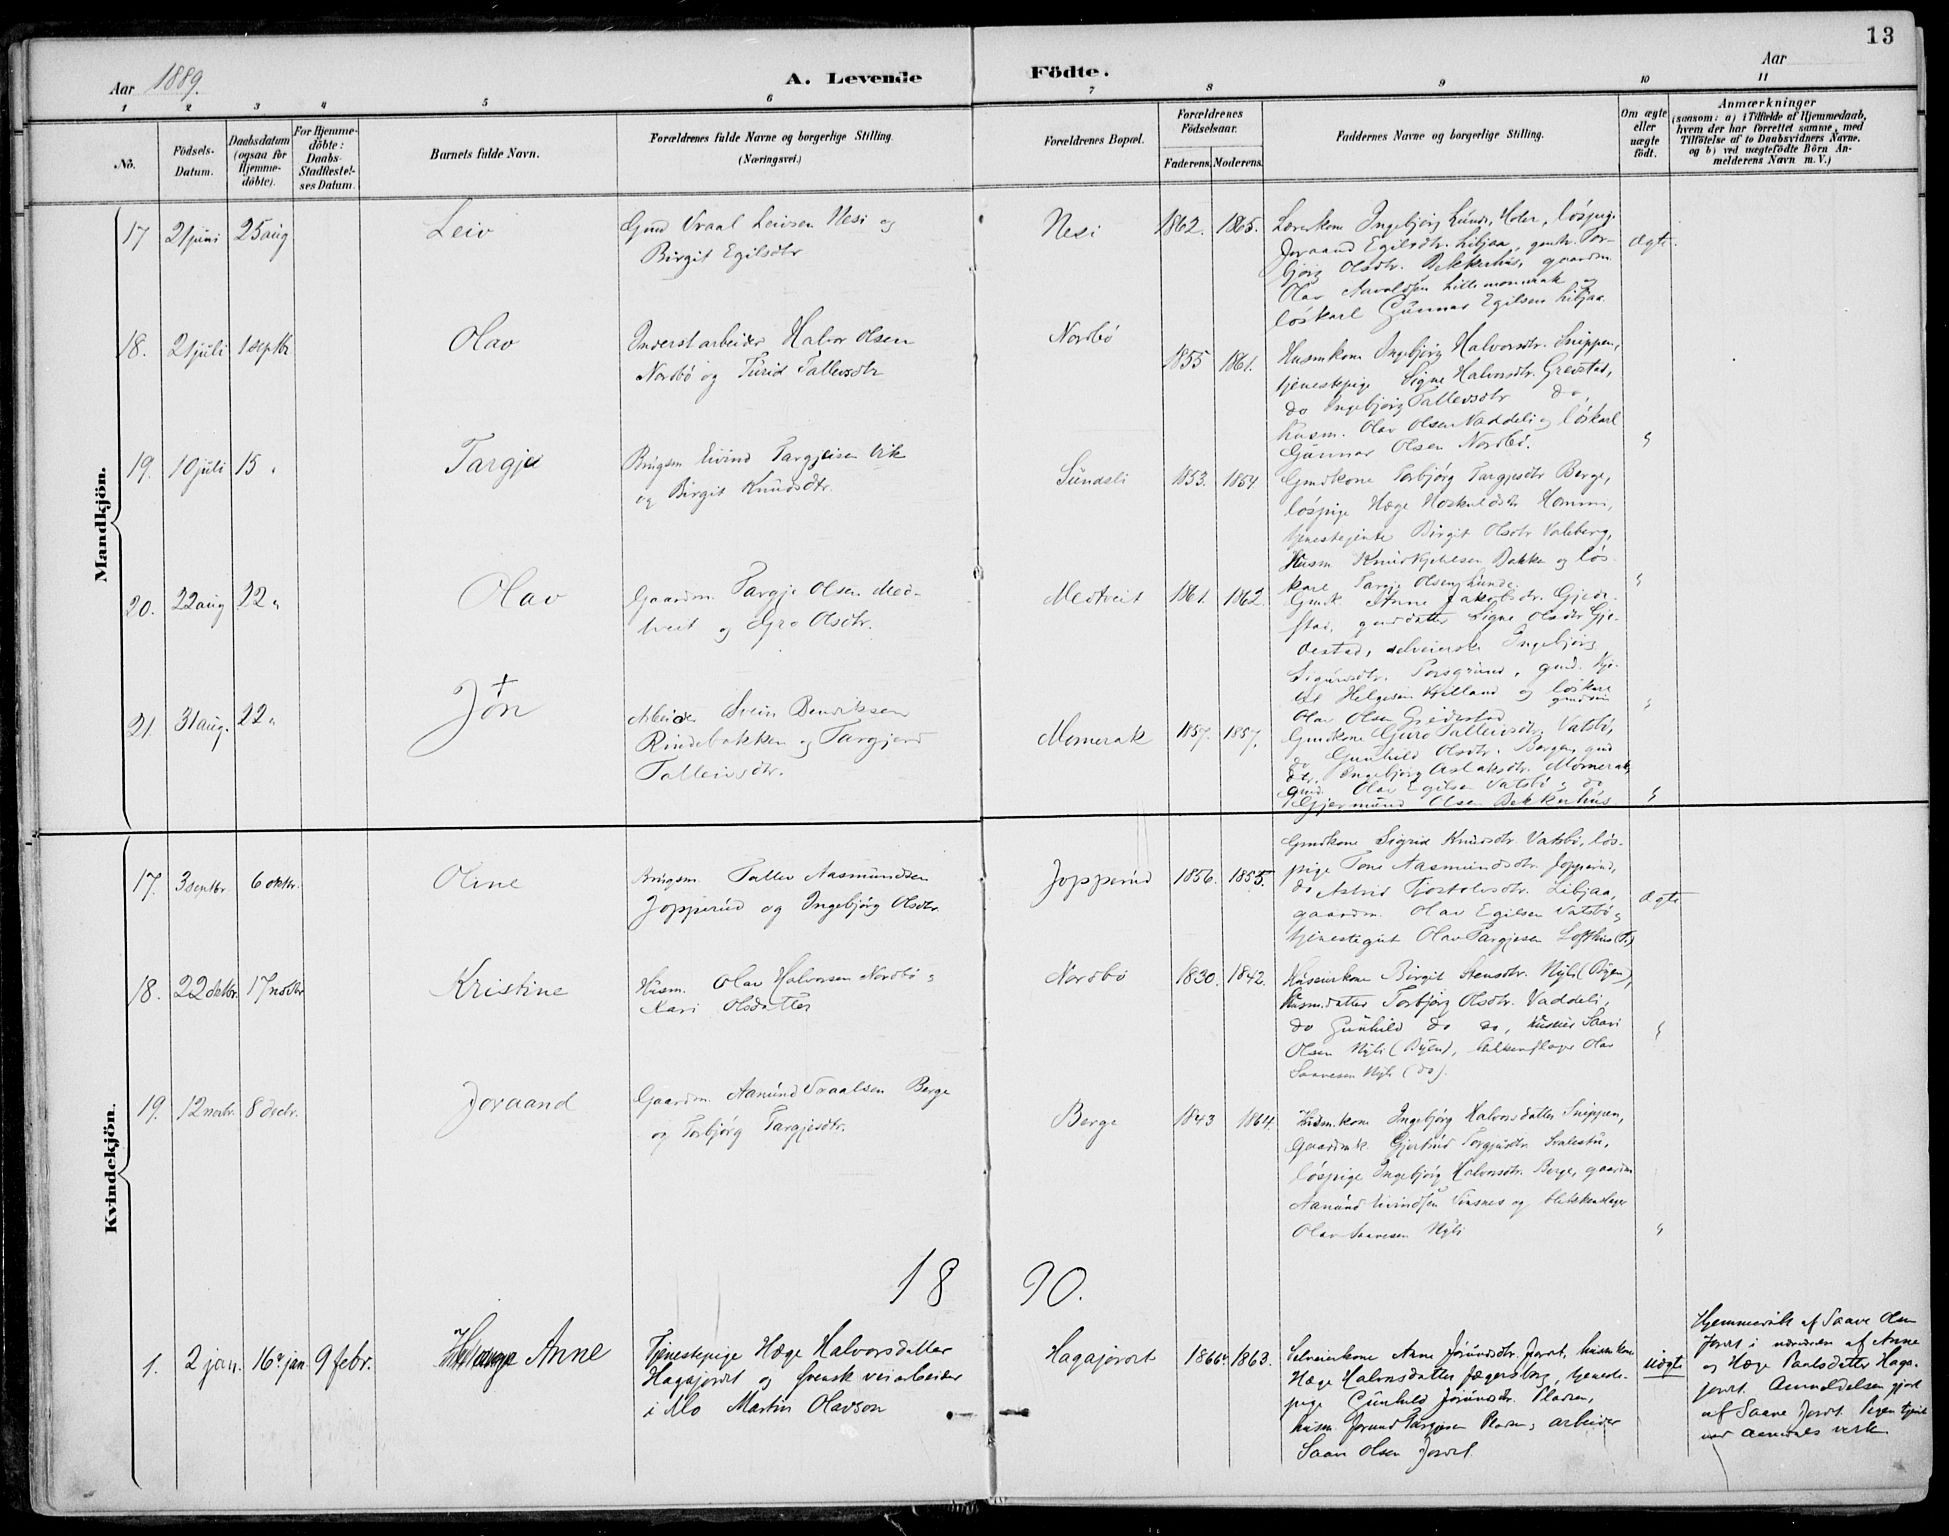 13
Aar 1889.
A. Levende Födte.
Aar
1 2 3 4 5 6 7 8 9 10 11
No.
Födsels-Datum.
Daabsdatum (ogsaa for Hjemme-döbte).
For Hjemme-döbte: Daabs-Stadfestel-ses Datum.
Barnets fulde Navn.
Forældrenes fulde Navne og borgerlige Stilling.
(Næringsvei.)
Forældrenes Bopæl.
Forældrenes Födselsaar.
Faderens. Moderens.
Faddernes Navne og borgerlige Stilling.
Om ægte eller uægte födt.
Anmærkninger
(saasom: a) i Tilfælde af Hjemmedaab,
hvem der har forrettet samme, med
Tilföielse af to Daabsvidners Navne.
og b) ved uægtefödte Börn An-
melderens Navn m. V.)
Mandkjön.
17 21 juni 25 aug Leiv
Gmd Vraal Leivsen Nesi og
Birgit Egilsdtr
Nesi 1862. 1865.
Lærerkone Ingebjörg Lunde, Moler, löspige
Joraand Egilsdtr. Libjaa, gmdk. Tor-
björg Olsdtr. Bekkerhus, gaardm.
Olav Aavaldsen Lillemomrak og
löskarl Gunnar Egilsen Libjaa
ægte.
18. 21 juli 1 septbr Olav
Inderst arbeider Halvor Olsen
Nordbö og Turid Tallevsdtr
Nordbö 1855 1861.
Husmkone Ingebjörg Halvorsdtr. Snippen,
tjenestepige Signe Halvorsdtr. Greivstad,
do Ingebjörg Tallevsdtr do,
husm. Olav Olsen Vaddeli og löskarl
Gunnar Olsen Nordbö.
"
19. 10 juli 15 " Targje
Brugsm Eivind Targjeisen Vik
og Birgit Knudsdtr.
Sundsli 1853. 1854
Gmdkone Torbjörg Targjesdtr Berge,
löspige Hæge Hoskuldsdtr Homm,
tjenestejente Birgit Olsdtr Valeberg,
Husm Knud Kjetilsen Bakka og lös-
karl Targje Olsen Lunde.
"
20. 22 aug 22 " Olav
Gaardm. Targje Olsen Med-
tveit og Gro Olsdtr.
Medtveit 1861. 1862.
Gmdk. Anne Jakobsdtr. Gjede-
stad, gmddatter Signe Olsdtr Gje-
destad, selveierske Ingebjörg
Sigurdsdtr. Porsgrund, gmd. Kje-
til Helgesen Kvilland og löskarl gmdsön
Olav Olsen Gjedestad
"
21. 31 aug. 22 " + Jón
Arbeider Svein Benriksen
Rindebakken og Targjerd
Talleivsdtr.
Momerak 1857. 1857.
Gmdkone Guro Talleivsdtr. Vatsbö,
do Gunhild Olsdtr. Bergen, gmd
dtr. Ingebjörg Aslaksdtr. Momerak,
gmd. Olav Egilsen Vatsbö, do
Gjermund Olsen Bekkerhus
"
Kvindekjön.
17. 3 septbr 6 oktbr. Oline
Brugsm. Tallev Aasmundsen
Jopperud og Ingebjörg Olsdtr.
Jopperud 1856. 1855.
Gmdkone Sigrid Knudsdtr. Vatsbö, lös-
pige Tone Aasmundsdtr. Jopperud,
do Astrid Tjostolvsdtr. Libjaa,
gaardm. Olav Egilsen Vatsbö,
tjenestegut Olav Targjesen Lofthus (T.)
ægte
18. 22 oktbr. 17 novbr Kristine
Husm. Olav Halvorsen Nordbö og
Kari Olsdatter
Nordbö 1830. 1842.
Huseierkone Birgit Stensdtr. Nyli (Byen),
husm.datter Torbjörg Olsdtr. Vaddeli,
do Gunhild do do, huseier Saavi
Olsen Nyli (Byen), blikkenslager Olav
Saavesen Nyli (do).
"
19. 12 novbr. 8 decbr. Joraand
Gaardm. Aanund Vraalsen Berge
og Torbjörg Targjesdtr.
Berge 1843 1864.
Husm.kone Ingebjörg Halvorsdatter Snippen,
Gaardmk. Gjertrud Torgjusdtr. Svalestu,
löspige Ingebjörg Halvorsdtr. Berge, gaardm
Aanund Eivindsen Sinsnes og blikkenslager
Olav Saavesen Nyli
"
1890.
1. 2 jan. 16 jan. 9 febr. Anne
Tjenestepige Hæge Halvorsdatter
Hagajordet og svensk veiarbeider
i Mo Martin Olavson
Hagajordet 1866 1863.
Selveierkone Anne Jörundsdtr. Jordet, husmkone
Hæge Halvorsdatter Jægersborg, tjeneste-
pige Gunhild Jörundsdtr. Pladsen,
husm. Jorund Targjesen Pladsen, arbeider
Saave Olsen Jordet
uægte
Hjemmedöbt af Saave Olsen
Jordet i nærværen af Anne
og Hæge Paulsdatter Haga-
jordet. Anmeldelsen gjort
af Saave Jordet. Pigen tjent
ved Aamdals verk.